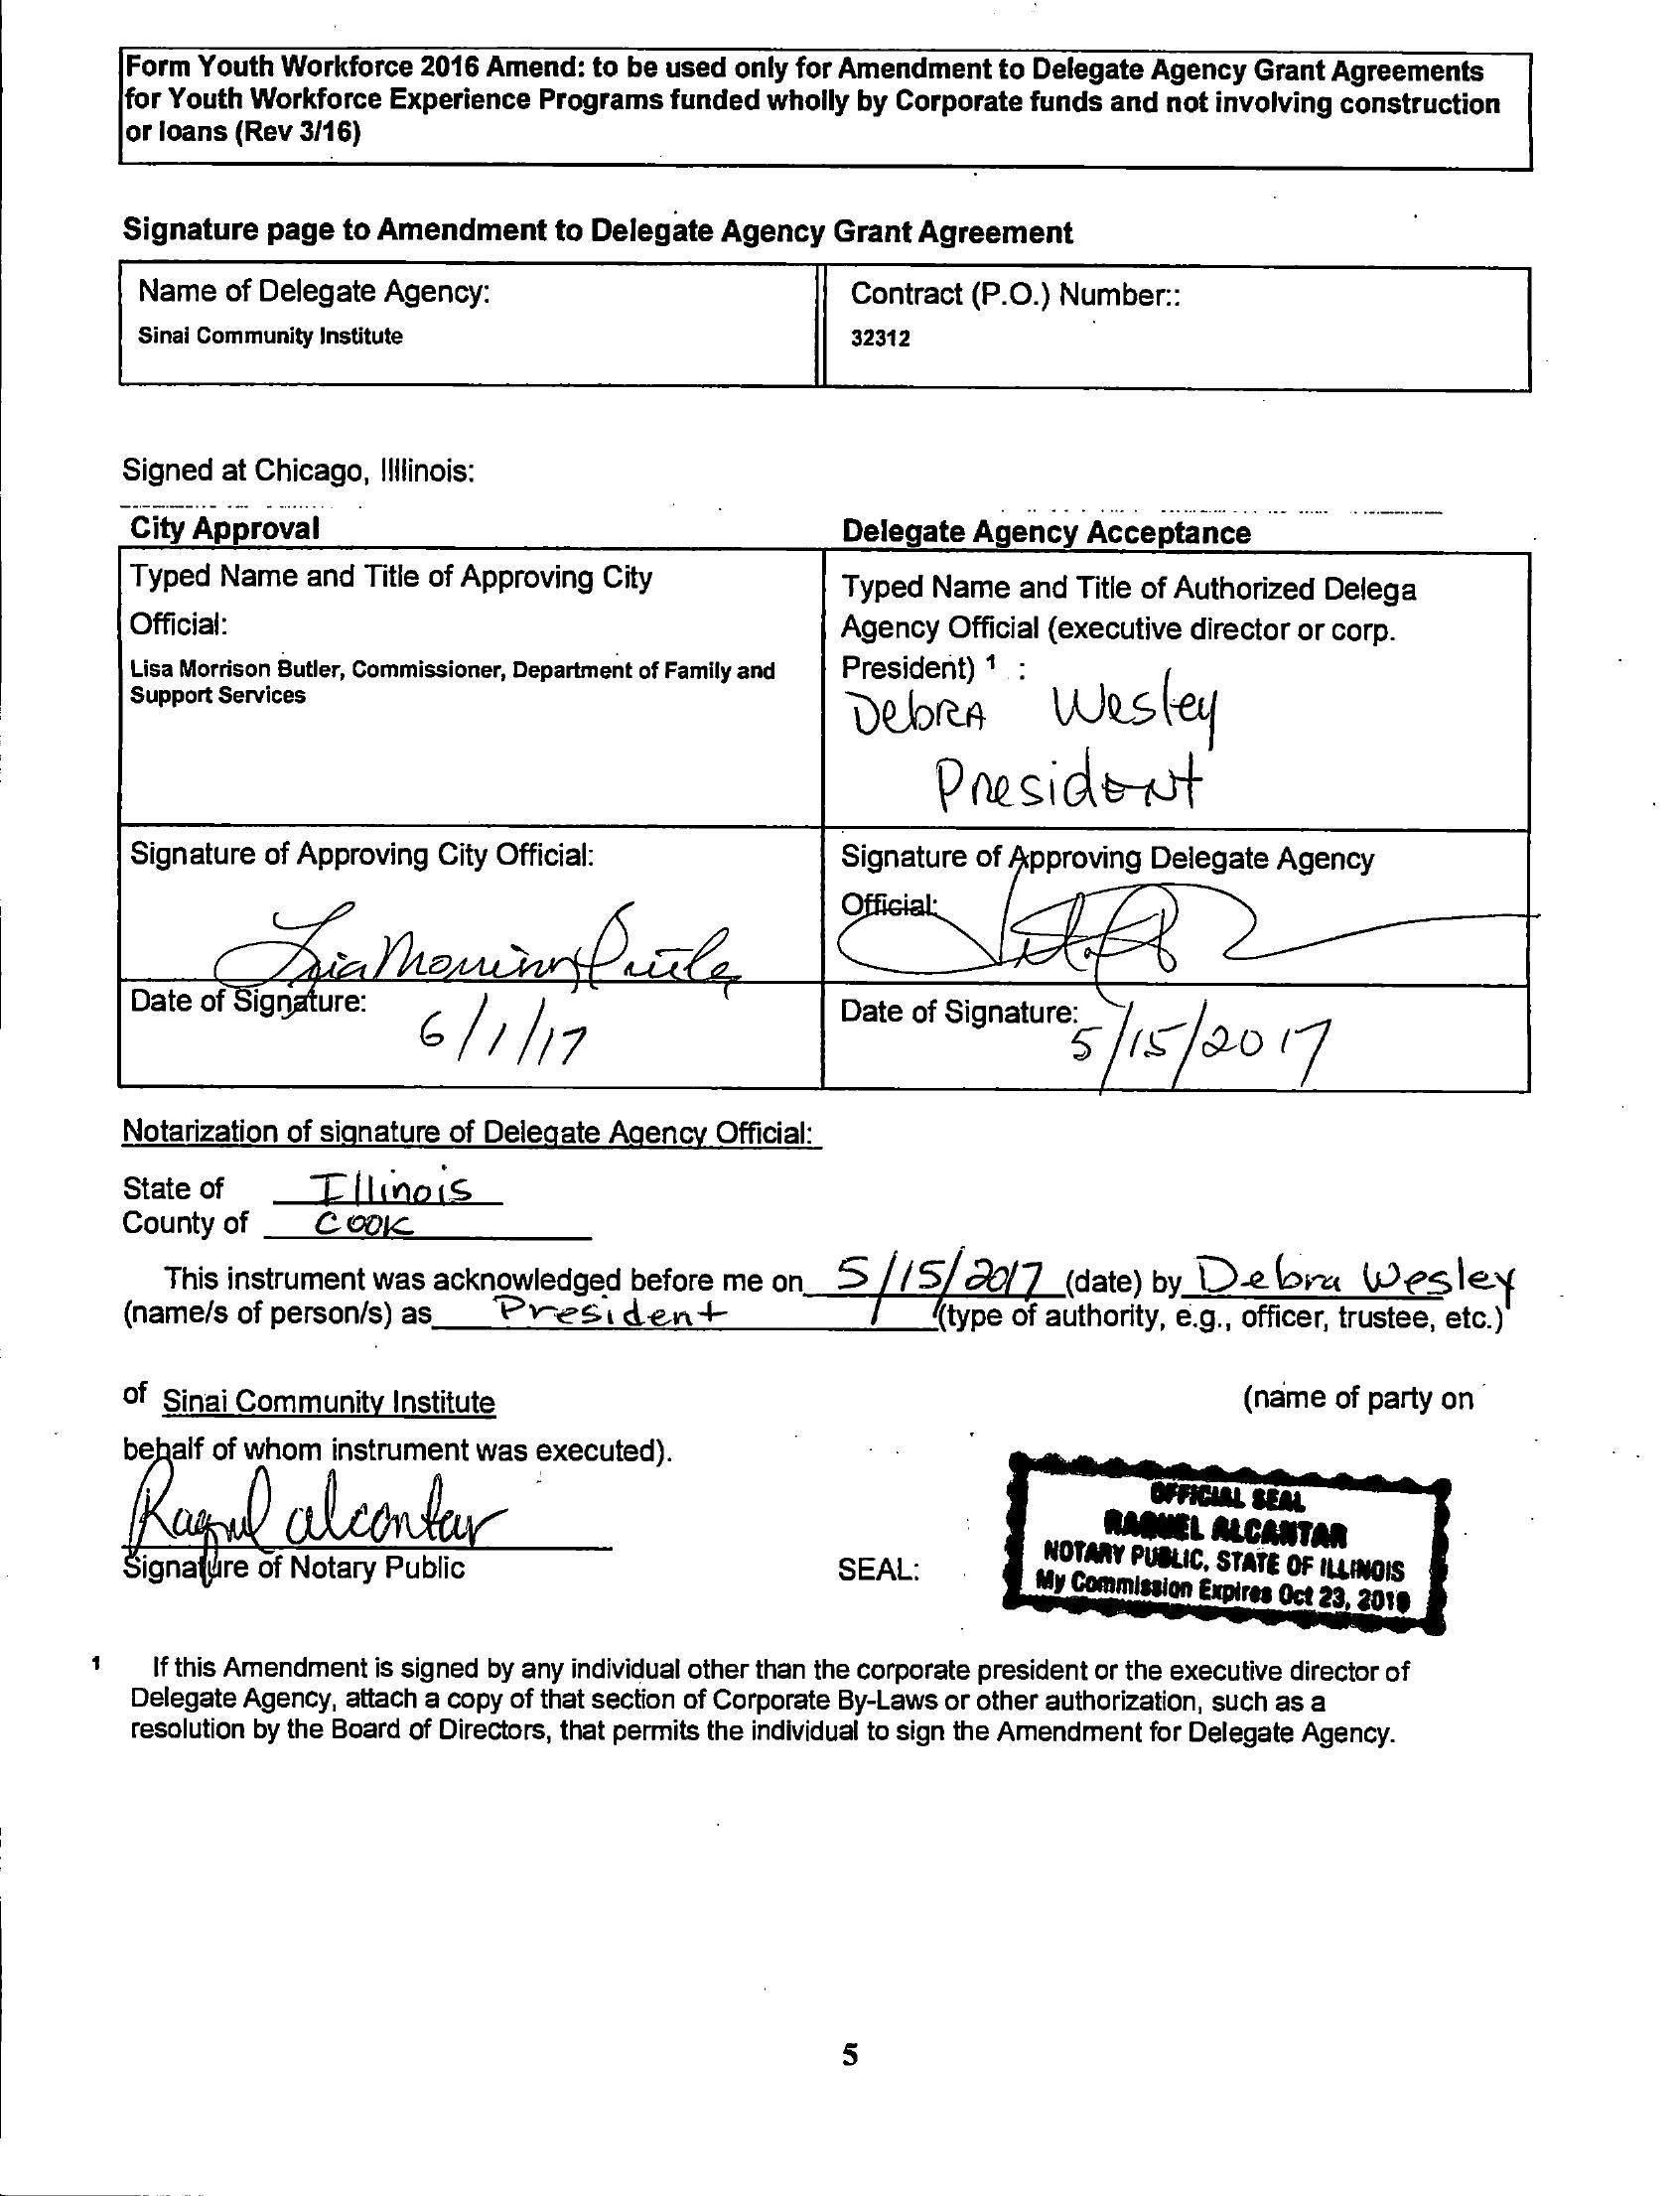 Form Youth Workforce 2016 Amend: to be used only for Amendment to Delegate Agency Grant Agreements
for Youth Workforce Experience Programs funded wholly by Corporate funds and not involving construction
or loans (Rev 3/16)
Signature page to Amendment to Delegate Agency Grant Agreement
Name of Delegate Agency:
Sinai Community Institute
Contract (P.O.) Number::
32312
Signed at Chicago, Illlinois:
City Approval
Typed Name and Title of Approving City
Official:
Lisa Morrison Butler, Commissioner, Department of Family and
Support Services
Delegate Agency Acceptance
Typed Name and Title of Authorized Delega
Agency Official (executive director or corp.
President) 1 :
Debra Wesley
President
Signature of Approving City Official:
Lisa Morrison Butler
Date of Signature:
6/1/17
Signature of Approving Delegate Agency
Official:
Date of Signature:
5/15/2017
Notarization of signature of Delegate Agency Official:
State of Illinois
County of Cook
This instrument was acknowledged before me on 5/15/2017 (date) by Debra Wesley
(name/s of person/s) as President (type of authority, e.g., officer, trustee, etc.)
of Sinai Community Institute (name of party on
behalf of whom instrument was executed).
Raquel Alcantar
Signature of Notary Public
SEAL:
OFFICIAL SEAL
RAQUEL ALCANTAR
NOTARY PUBLIC, STATE OF ILLINOIS
My Commission Expires Oct 23,
1 If this Amendment is signed by any individual other than the corporate president or the executive director of
Delegate Agency, attach a copy of that section of Corporate By-Laws or other authorization, such as a
resolution by the Board of Directors, that permits the individual to sign the Amendment for Delegate Agency.
5